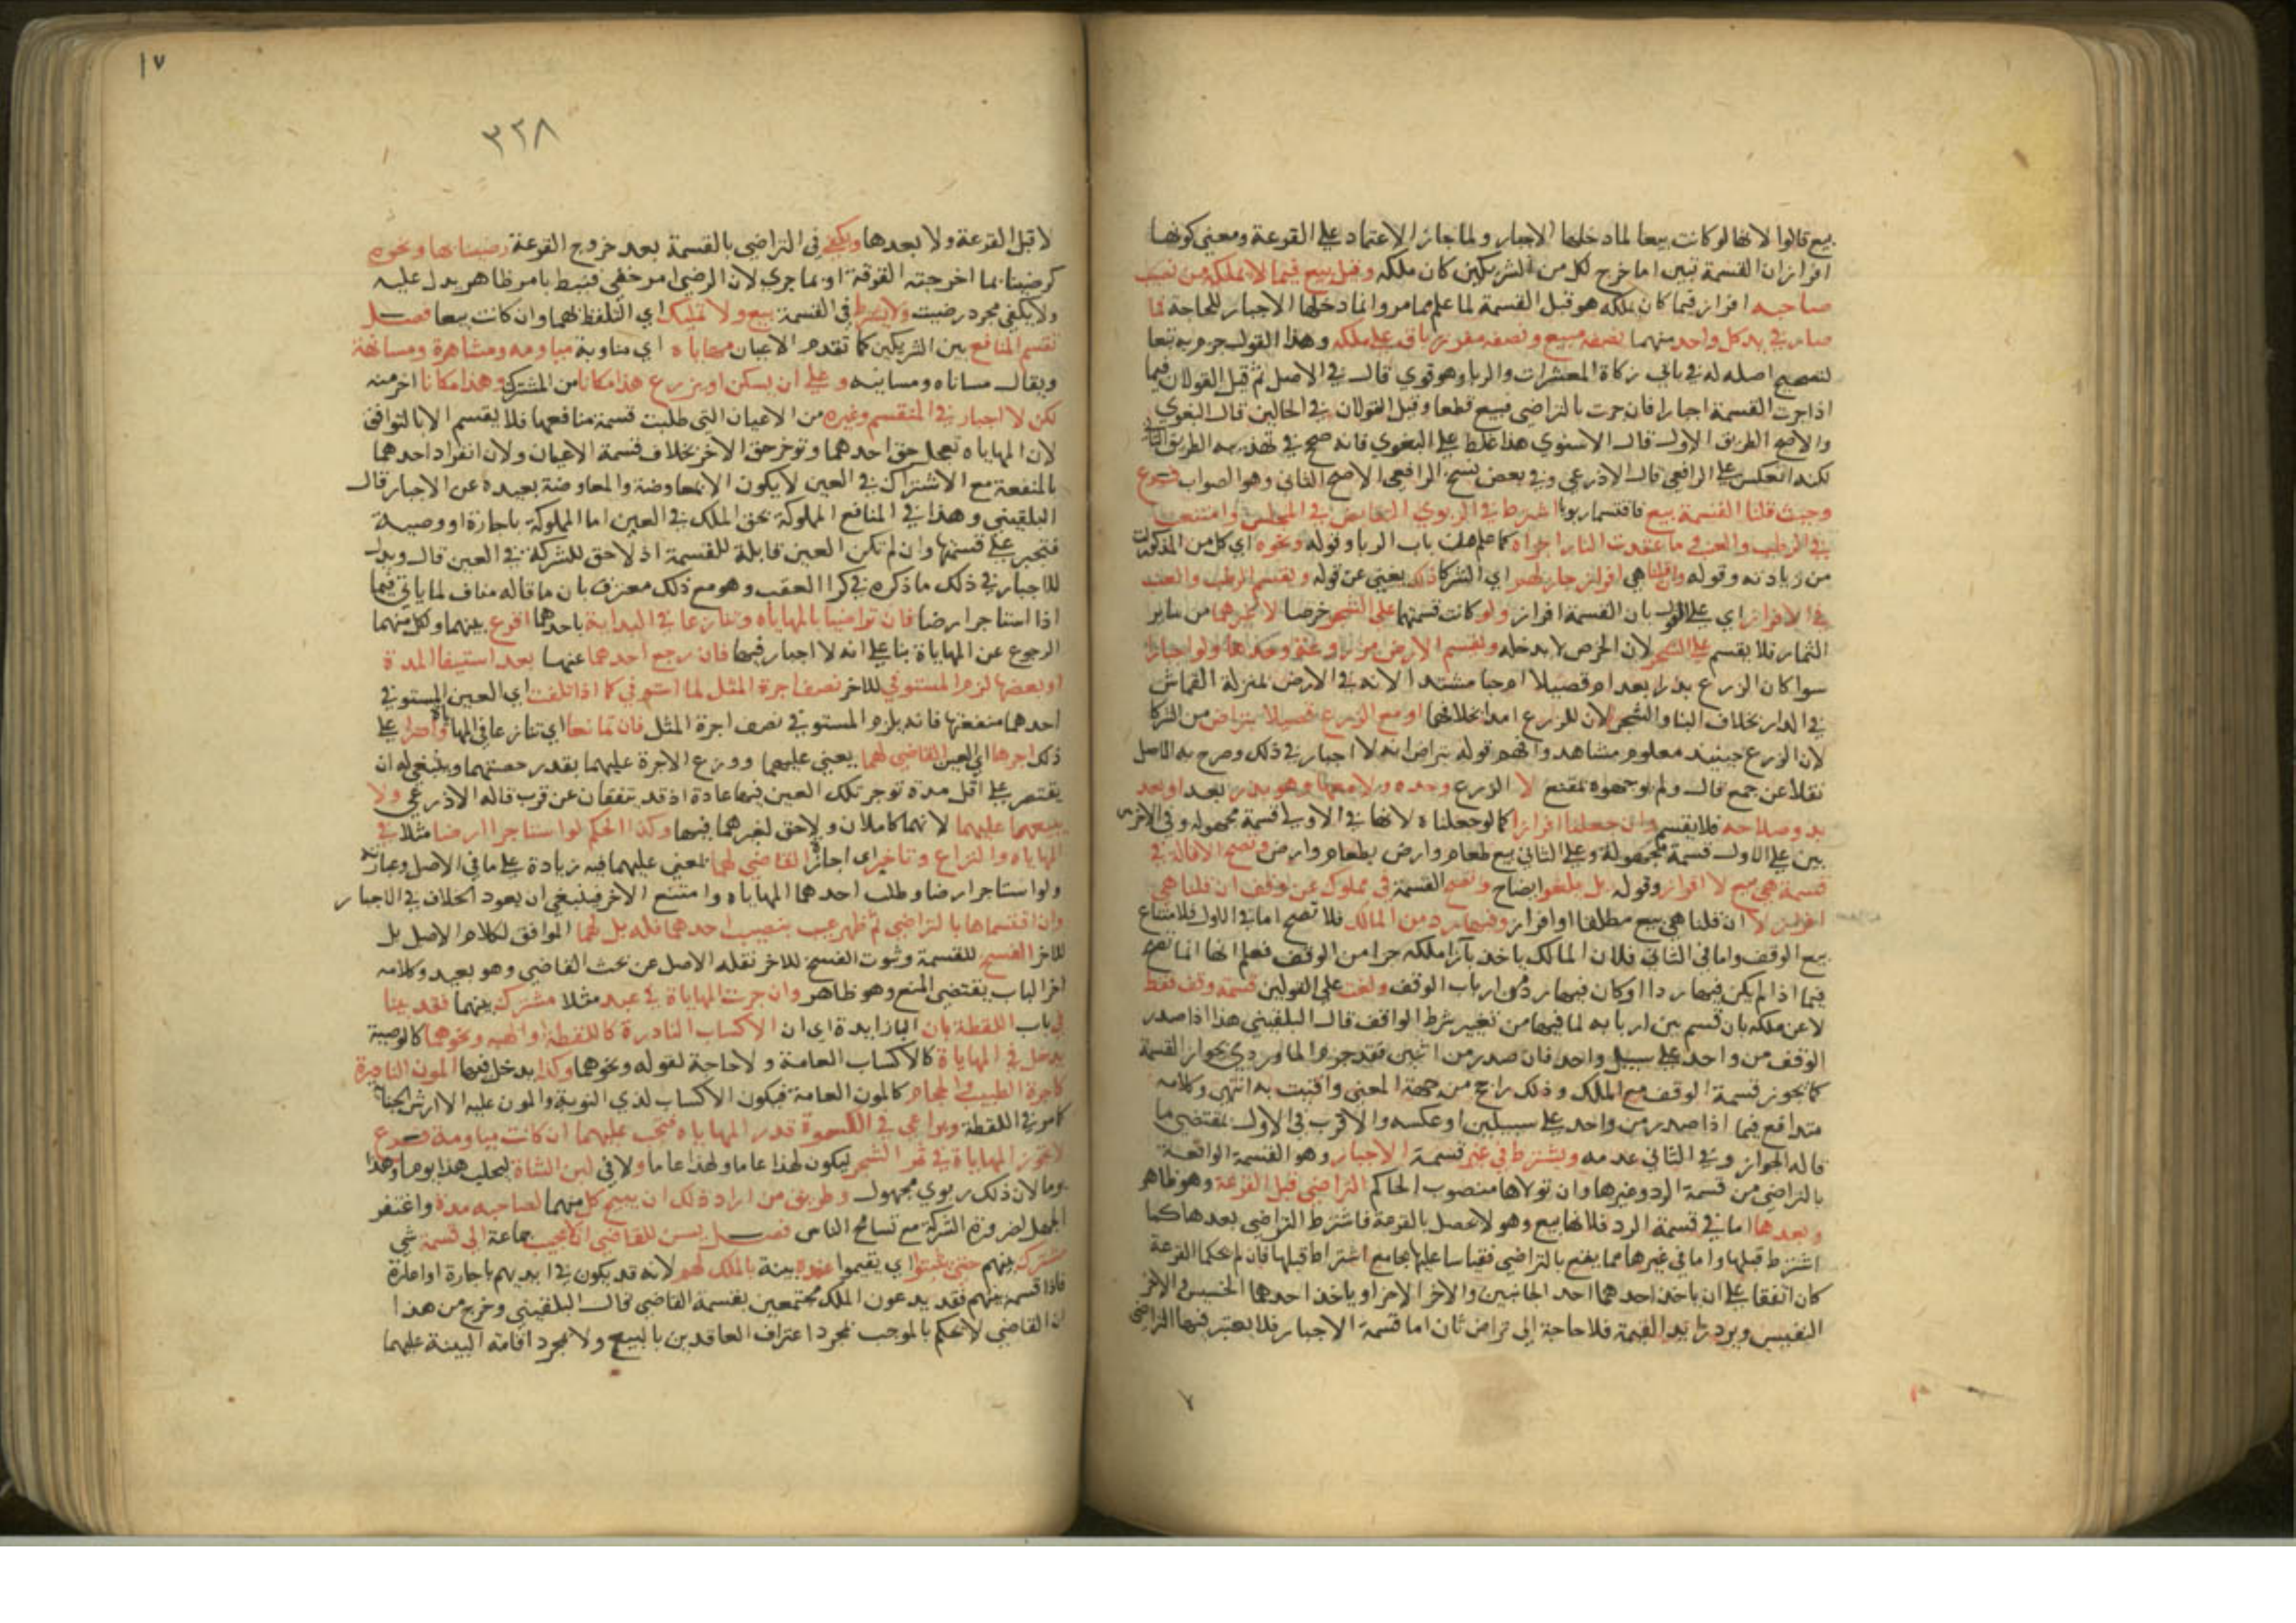 بيع قالوا لانها لو كانت بيعا لما دخلها الاجبار ولما جاز الاعتماد على القرعة ومعنى كونها
افرازا ان القسمة تبين ان ما خرج لكل من الشريكين كان ملكه وقيل بيع فيما لا يملكه من نصيب
صاحبه افراز فيما كان يملكه هو قبل القسمة لما علم مما مر وانما دخلها الاجبار للحاجة فما
صار في يد كل واحد منهما نصفه مبيع ونصفه مفرز باق على ملكه وهذا القول جزم به تبعا
لتصحيح اصله له في بابي زكاة المعشرات والربا وهو قوي قال في الاصل ثم قيل القولان فيما
اذا جرت القسمة اجبارا فان جرت بالتراضي فبيع قطعا وقيل القولان في الحالين قال البغوي
والاصح الطريق الاول قال الاسنوي هذا غلط على البغوي فانه صحح في تهذيبه الطريق الثاني
لكنه انعكس على الرافعي قال الاذرعي وفي بعض نسخ الرافعي الاصح الثاني وهو الصواب فرع
وحيث قلنا القسمة بيع فاقتسما ربويا اشترط في الربوي التقابض في المجلس وامتنعت
في الرطب والعنب وما عقدت النار اجزاه كما علم من باب الربا وقوله ونحوه اي كل من المذكورات
من زيادته وقوله وان قلنا هي افراز جاز لهم اي الشركا ذلك يغني عن قوله ويقسم الرطب والعنب
في الافراز اي على القول بان القسمة افراز ولو كانت قسمتهما على الشجر خرصا لا غيرهما من ساير
الثمار فلا يقسم على الشجر لان الخرص لا يدخله وتقسم الارض مزروعة وحدها ولو اجبارا
سوا كان الزرع بذرا بعد ام قصيلا ام حبا مشتدا لانه في الارض بمنزلة القماش
في الدار بخلاف البنا والشجر لان للزرع امدا بخلافهما او مع الزرع قصيلا بتراض من الشركا
لان الزرع حينئذ معلوم مشاهد وافهم قوله بتراض انه لا اجبار في ذلك وصرح به الاصل
نقلا عن جمع قال ولم يوجهوه بمقنع لا الزرع وحده ولا معها وهو بذر بعد او بعد
بدو صلاحه فلا يقسم وان جعلناها افرازا كما لو جعلناه لانها في الاولى قسمة مجهول وفي الاخرتين
بين على الاول قسمة مجهولة وعلى الثاني بيع طعام وارض بطعام وارض وتصح الاقالة في
قسمة هي بيع لا افراز وقوله بل يلغوا ايضاح وتصح القسمة في مملوك عن وقف ان قلنا هي
افراز لا ان قلنا هي بيع مطلقا او افراز وفيها رد من المالك فلا تصح اما في الاول فلامتناع
بيع الوقف واما في الثاني فلان المالك ياخذ بازا ملكه جزا من الوقف فعلم انها انما تصح
فيما اذا لم يكن فيها رد او كان فيها رد من ارباب الوقف ولغت على القولين قسمة وقف فقط
لا عن ملك بان قسم بين اربابه لما فيها من تغيير شرط الواقف قال البلقيني هذا اذا صدر
الوقف من واحد على سبيل واحد فان صدر من اثنين فقد جزم الماوردي بجواز القسمة
كما تجوز قسمة الوقف مع الملك وذلك راجح من جهة المعنى وافتيت به انتهى وكلامه
متدافع فيما اذا صدر من واحد على سبيلين او عكسه والاقرب في الاول بمقتضى ما
قاله الجواز وفي الثاني عدمه ويشترط في غير قسمة الاجبار وهو القسمة الواقعة
بالتراضي من قسمة الرد وغيرها وان تولاها منصوب الحاكم التراضي قبل القرعة وهو ظاهر
وبعدها اما في قسمة الرد فلانها بيع وهو لا يحصل بالقرعة فاشترط التراضي بعدها كما
اشترط قبلها واما في غيرها مما يقع بالتراضي فقياسا عليها بجامع اشتراط قبلها فان لم يحكما القرعة
كان اتفقا على ان ياخذ احدهما احد الجانبين والاخر الاخر او ياخذ احدهما الخسيس والاخر
النفيس ويرد زايد القيمة فلا حاجة الى تراض ثان اما قسمة الاجبار فلا يعتبر فيها التراضي
١٧
٣٢٨
لا قبل القرعة ولا بعدها ويكفي في التراضي بالقسمة بعد خروج القرعة رضينا بها ونحوه
كرضينا بما اخرجته القرعة او بما جرى لان الرضى امر خفي فنيط بامر ظاهر يدل عليه
ولا يكفي مجرد رضيت ولا يشترط في القسمة بيع ولا تمليك اي التلفظ بهما وان كانت بيعا فصل
تقسم المنافع بين الشريكين كما تقدم الاعيان مهاياه اي مناوبة مياومه ومشاهرة ومسانهة
ويقال مساناه ومسانيه وعلى ان يسكن او يزرع هذا مكانا من المشترك وهذا مكانا اخر منه
لكن لا اجبار في المنقسم وغيره من الاعيان التي طلبت قسمة منافعها فلا يقسم الا بالتوافق
لان المهاياه تعجل حق احدهما وتوخر حق الاخر بخلاف قسمة الاعيان ولان انفراد احدهما
بالمنفعة مع الاشتراك في العين لا يكون الا بمعاوضة والمعاوضة بعيدة عن الاجبار قال
البلقيني وهذا في المنافع المملوكة بحق الملك في العين اما المملوكة باجارة او وصية
فتجبر على قسمتها وان لم تكن العين قابلة للقسمة اذ لا حق للشركة في العين قال ويدل
للاجبار في ذلك ما ذكره في كرا العقب وهو مع ذلك معترف بان ما قاله مناف لما ياتي فيما
اذا استاجرا ارضا فان تراضيا بالمهاياه وتنازعا في البداية باحدهما اقرع بينهما ولكل منهما
الرجوع عن المهاياة بنا على انه لا اجبار فيها فان رجع احدهما عنها بعد استيفا المدة
او بعضها لزم المستوفي للاخر نصف اجرة المثل لما استوفى كما اذا تلفت اي العين المستوفي
احدهما منفعتها فانه يلزم المستوفي نصف اجرة المثل فان تمانعا اي تنازعا في المهاياة واصرا على
ذلك اجرها اي العين القاضي لهما يعني عليهما ووزع الاجرة عليهما بقدر حصتهما وينبغي له ان
يقتصر على اقل مدة توجر تلك العين فيها عادة اذ قد يتفقان عن قرب قاله الاذرعي ولا
يبيعها عليهما لانهما كاملان ولا حق لغيرهما فيها وكذا الحكم لو استاجرا ارضا مثلا في
المهاياه والنزاع وتاخير اي اجازة القاضي لهما يعني عليهما فيه زيادة على ما في الاصل وعبارته
ولو استاجرا ارضا وطلب احدهما المهاياه وامتنع الاخر فينبغي ان يعود الخلاف في الاجبار
وان اقتسماها بالتراضي ثم ظهر عيب بنصيب احدهما فله بل لهما الموافق لكلام الاصل بل
للاخر الفسخ للقسمة وثبوت الفسخ للاخر نقله الاصل عن بحث القاضي وهو بعيد وكلامه
اخر الباب يقتضي المنع وهو ظاهر وان جرت المهاياة في عبد مثلا مشترك بينهما فقد بينا
في باب اللقطة بان الاكساب النادرة كاللقطة والهبه ونحوهما كالوصية
يدخل في المهاياة كالاكساب العامة ولا حاجة لقوله ونحوهما وكذا يدخل فيها المون النادرة
كاجرة الطبيب والحجام كالمون العامة فيكون الاكساب لذي النوبة والمون عليه الا ارش الجناية
كما مر في اللقطة ويراعى في الكسوة قدر المهاياه فتجب عليهما ان كانت مياومة فرع
لا تجوز المهاياة في ثمر الشجر ليكون لهذا عاما ولهذا عاما ولا في لبن الشاة ليحلب هذا يوما وهذا
يوما لان ذلك ربوي مجهول وطريق من اراد ذلك ان يبيح كل منهما لصاحبه مدة واغتفر
الجهل لضرورة الشركة مع تسامح الناس فصل ليس للقاضي ان يجيب جماعة الى قسمة شي
مشترك بينهم حتى يثبتوا اي يقيموا عنده بينة بالملك لهم لانه قد يكون في ايديهم باجارة او اعارة
فاذا قسمه بينهم فقد يدعون الملك محتجين بقسمة القاضي قال البلقيني وخرج من هذا
ان القاضي لا يحكم بالموجب بمجرد اعتراف العاقدين بالبيع ولا بمجرد اقامة البينة عليهما